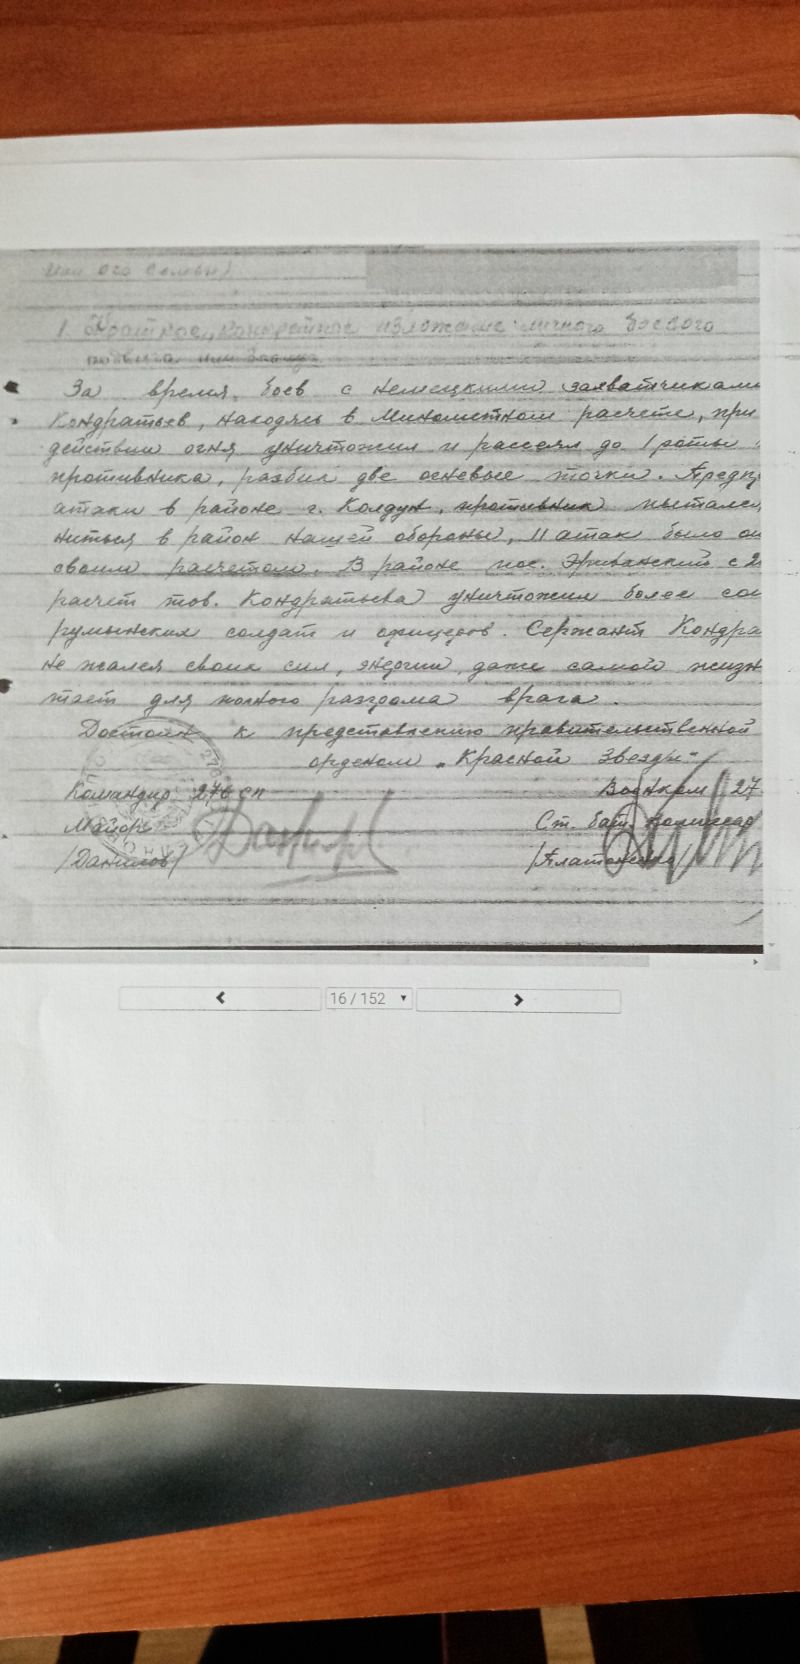 или его семьи)
1. Краткое, конкретное изложение личного боевого
подвига или заслуг
За время боев с немецкими захватчиками
Кондратьев, находясь в минометном расчете, при
действии огня уничтожил и рассеял до 1 роты
противника, разбил две огневые точки. Предп
атаки в районе г. Колдун, противник пытался
ниться в район нашей обороны, 11 атак было о
своим расчетом. В районе пос. Эриванский с 2
расчет тов. Кондратьева уничтожил более со
румынских солдат и офицеров. Сержант Кондра
не жалея своих сил, энергии, даже самой жизн
тает для полного разгрома врага.
Достоин к представлению правительственной
орденом „Красной Звезды"
Командир 276 сп Военком 27
Майор Ст. бат. комиссар
/Данилов/ /Платоненко/
16 / 152